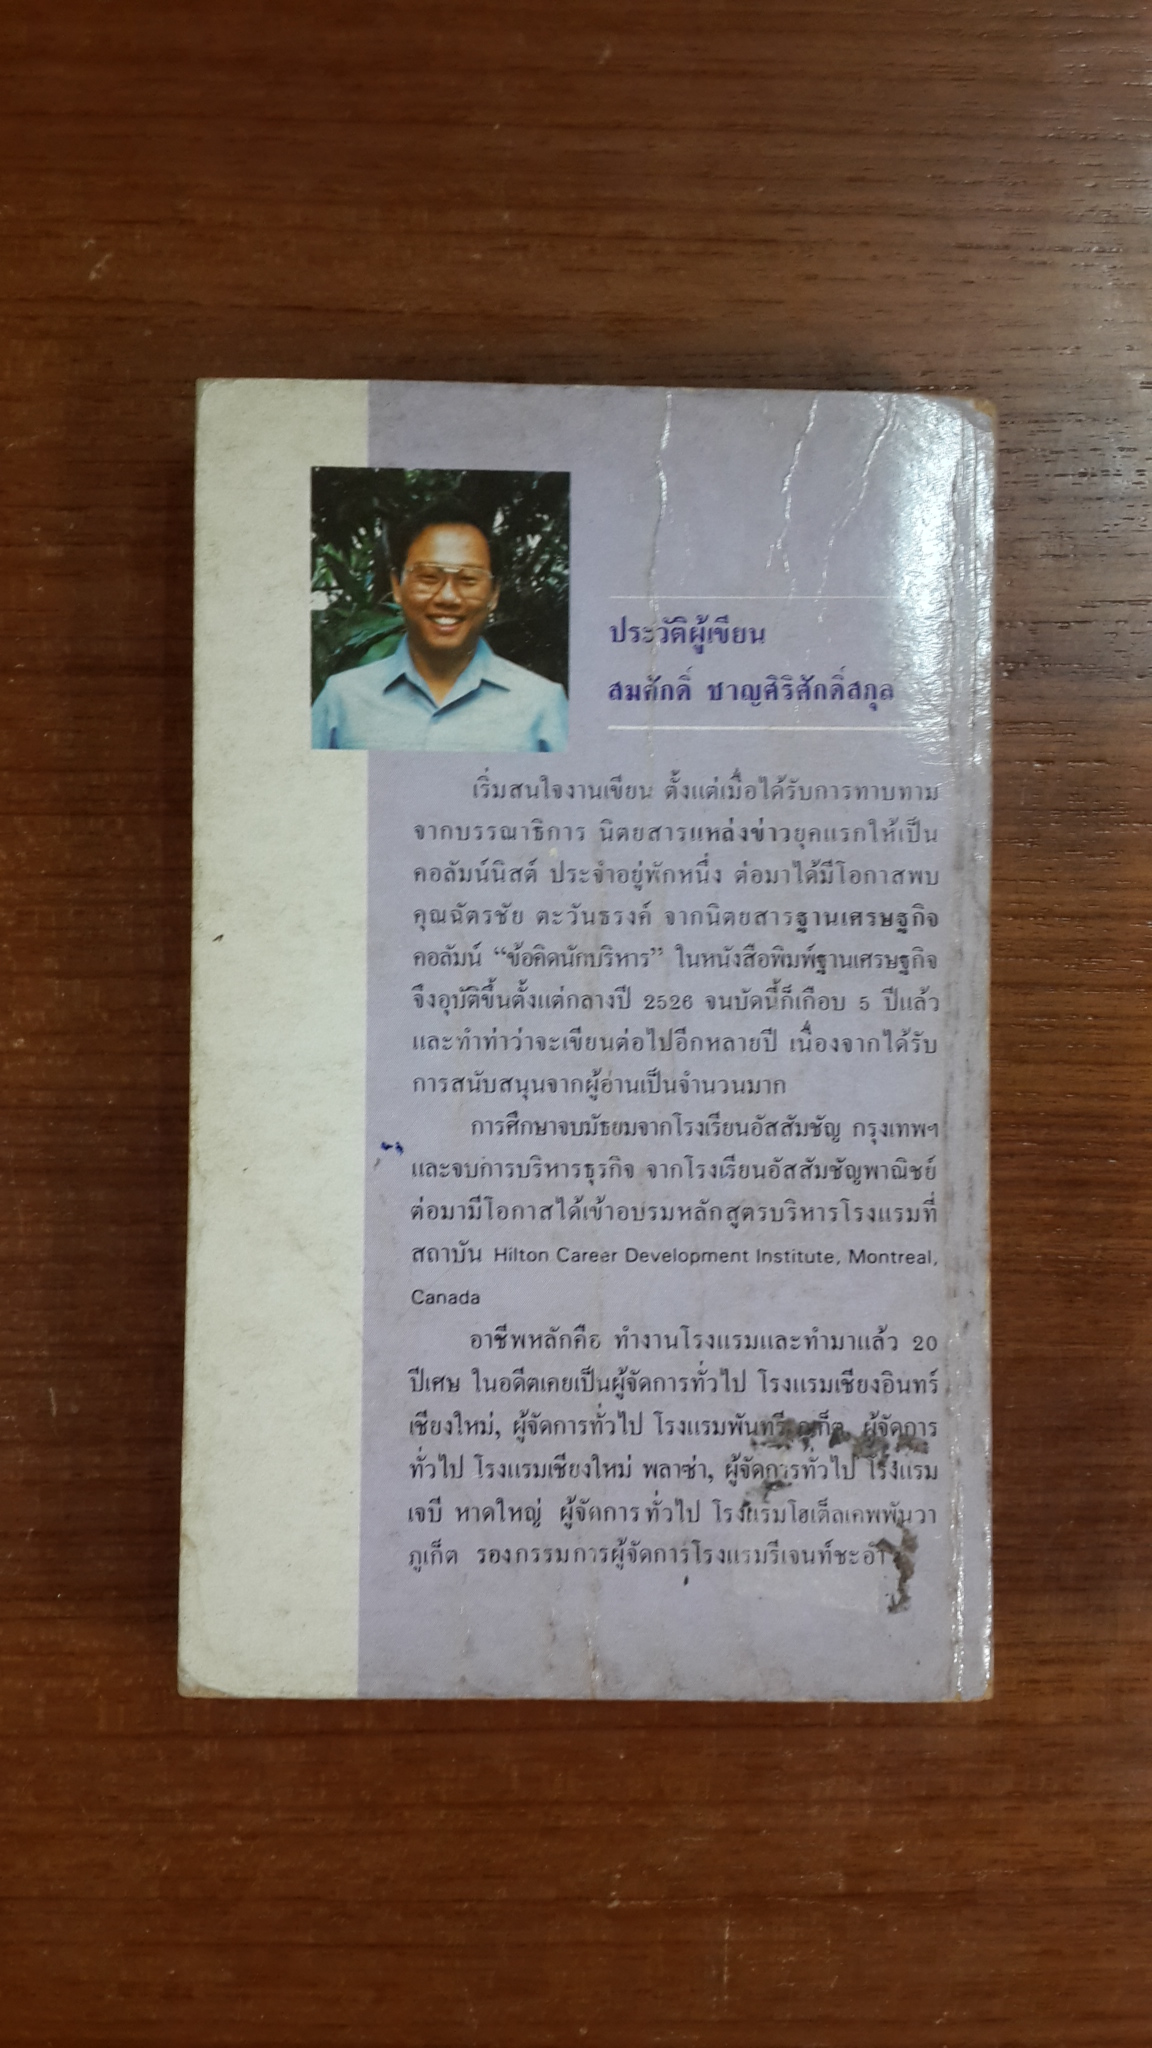 ประวัติผู้เขียน
สมศักดิ์ ชาญศิริศักดิ์สกุล
เริ่มสนใจงานเขียน ตั้งแต่เมื่อได้รับการทาบทาม
จากบรรณาธิการ นิตยสารแหล่งข่าวยุคแรกให้เป็น
คอลัมน์นิสต์ ประจำอยู่พักหนึ่ง ต่อมาได้มีโอกาสพบ
คุณฉัตรชัย ตะวันธรงค์ จากนิตยสารฐานเศรษฐกิจ
คอลัมน์ “ข้อคิดนักบริหาร” ในหนังสือพิมพ์ฐานเศรษฐกิจ
จึงอุบัติขึ้นตั้งแต่กลางปี 2526 จนบัดนี้ก็เกือบ 5 ปีแล้ว
และทำท่าว่าจะเขียนต่อไปอีกหลายปี เนื่องจากได้รับ
การสนับสนุนจากผู้อ่านเป็นจำนวนมาก
การศึกษาจบมัธยมจากโรงเรียนอัสสัมชัญ กรุงเทพฯ
และจบการบริหารธุรกิจ จากโรงเรียนอัสสัมชัญพาณิชย์
ต่อมามีโอกาสได้เข้าอบรมหลักสูตรบริหารโรงแรมที่
สถาบัน Hilton Career Development Institute, Montreal,
Canada
อาชีพหลักคือ ทำงานโรงแรมและทำมาแล้ว 20
ปีเศษ ในอดีตเคยเป็นผู้จัดการทั่วไป โรงแรมเชียงอินทร์
เชียงใหม่, ผู้จัดการทั่วไป โรงแรมพันทรี ภูเก็ต ผู้จัดการ
ทั่วไป โรงแรมเชียงใหม่ พลาซ่า, ผู้จัดการทั่วไป โรงแรม
เจบี หาดใหญ่ ผู้จัดการทั่วไป โรงแรมโฮเต็ลเคพพันวา
ภูเก็ต รองกรรมการผู้จัดการโรงแรมรีเจนท์ชะอำ